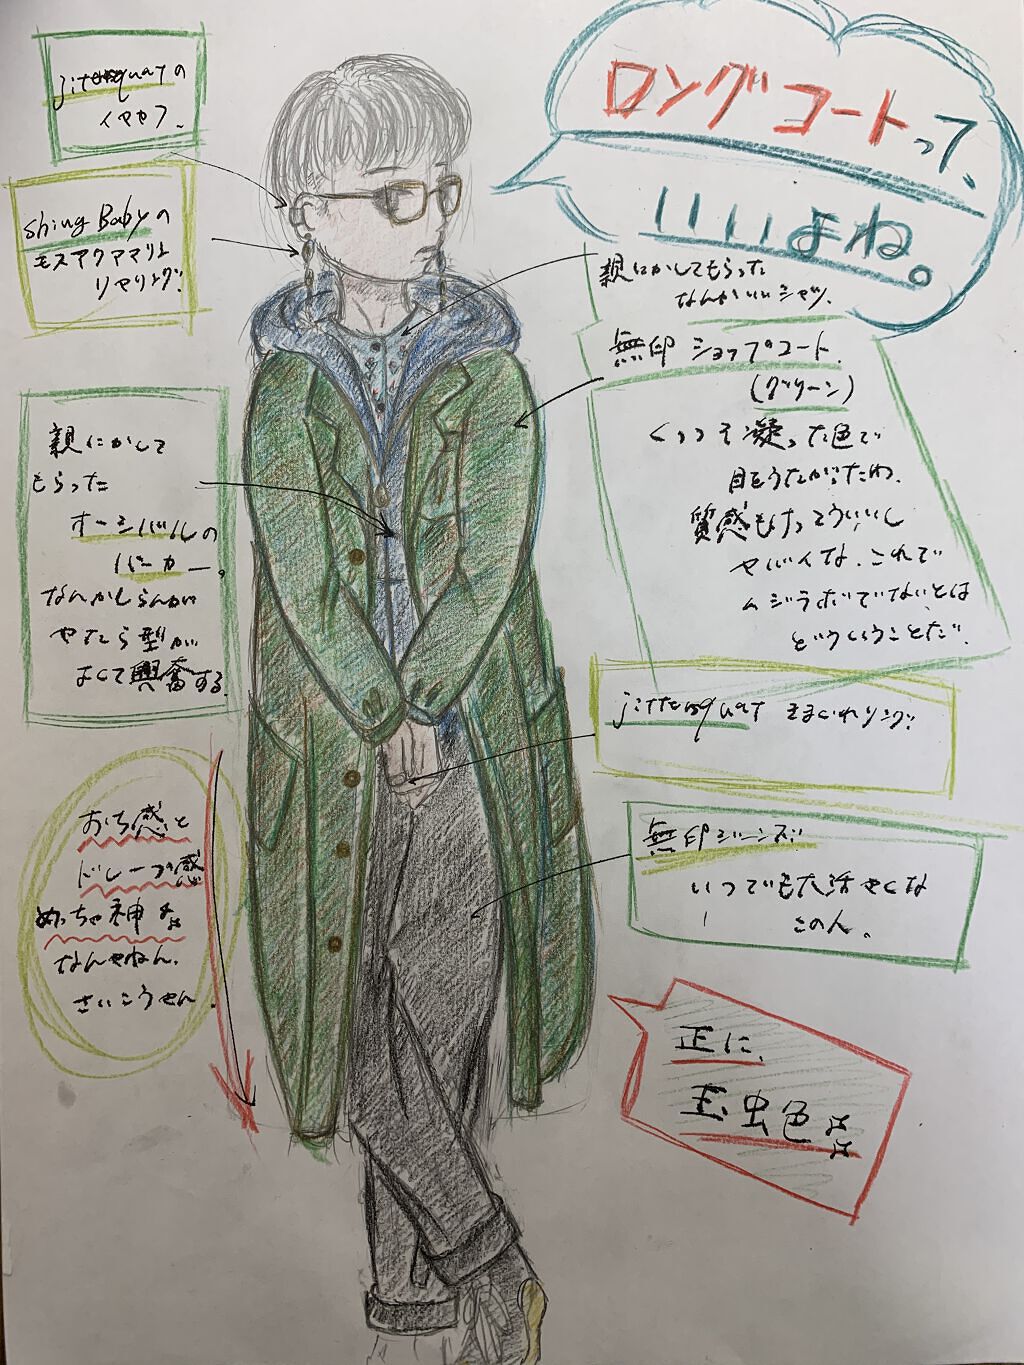 ロングコートって、
いいよね。
jitterquatの
イヤカフ、
Shing Babyの
モスアクアマリン
イヤリング!
親にかしてもらった
なんかいいシャツ。
無印 ショップのコート。
(グリーン)
くっっそ凝った色で
目をうたがったわ。
質感もたっていいし
ヤバイな、これで
ムジラボでないとは
どういうことだ。
親にかして
もらった
オーシバルの
パーカー。
なんかしらんが
やたら型が
よくて興奮する。
jitterquat きまぐれリング!
無印ジーンズ
いつでも大活やくな
この人。
おち感と
ドレープ感
めっちゃ神よ
なんやねん、
さいこうやん。
正に、
玉虫色よ